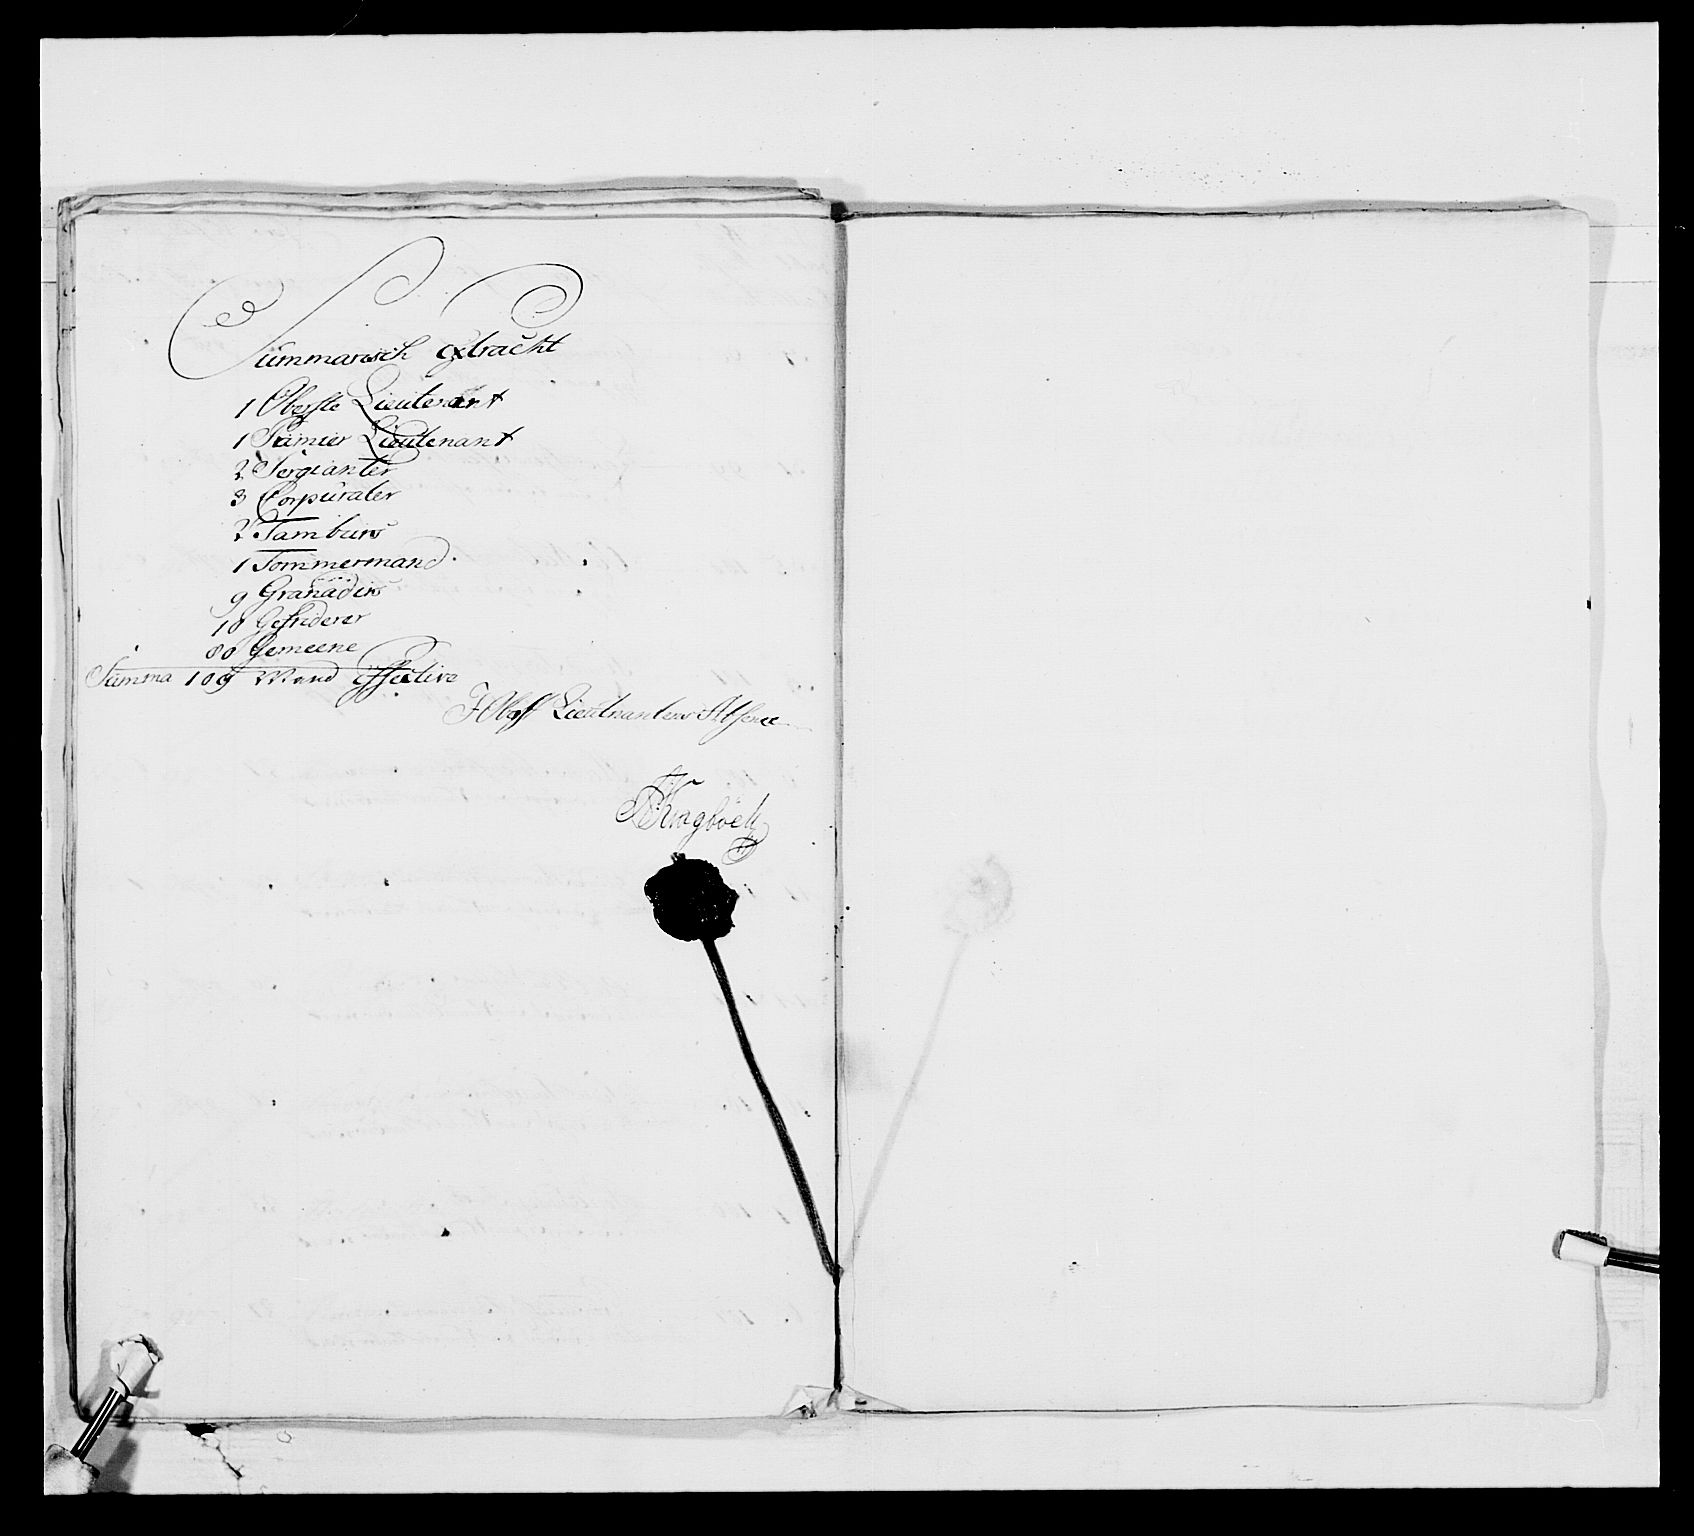 Summarisch Extracht
1 Oberste Lieutenant
1 Prïmier Lieutenant
2 Sergianter
3 Corpuraler
2 Tamburs
1 Tommermand
9 Granadirs
10 Gefriderer
80 Gemeene
Summa 109 Mand Effective
I Obst Lieutnantens Absence
Kragböell